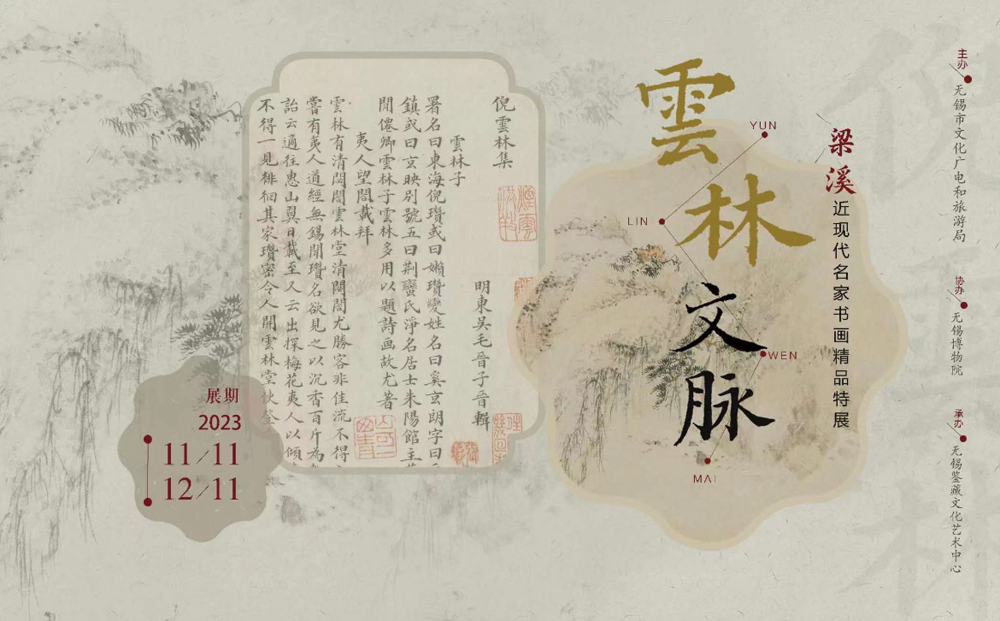 主办
无锡市文化广电和旅游局
协办
无锡博物院
承办
无锡鉴藏文化艺术中心
梁溪
近现代名家书画精品特展
雲林
文脉
YUN
LIN
WEN
MAI
倪雲林集
明東吳毛晉子晉輯
雲林子
署名曰東海倪瓚或曰嬾瓚變姓名曰奚玄朗字曰
鎮或曰玄映別號五曰荆蠻氏淨名居士朱陽館主
閒僊卿雲林子雲林多用以題詩画故尤著
夷人望閣載拜
雲林有清閟閣雲林堂清閟閣尤勝客非佳流不得
嘗有夷人道經無錫聞瓚名欲見之以沉香百斤為
詒云適往惠山翼日載至又云出探梅花夷人以傾
不得一見徘徊其家瓚密令人開雲林堂使登
展期
2023
11/11
12/11